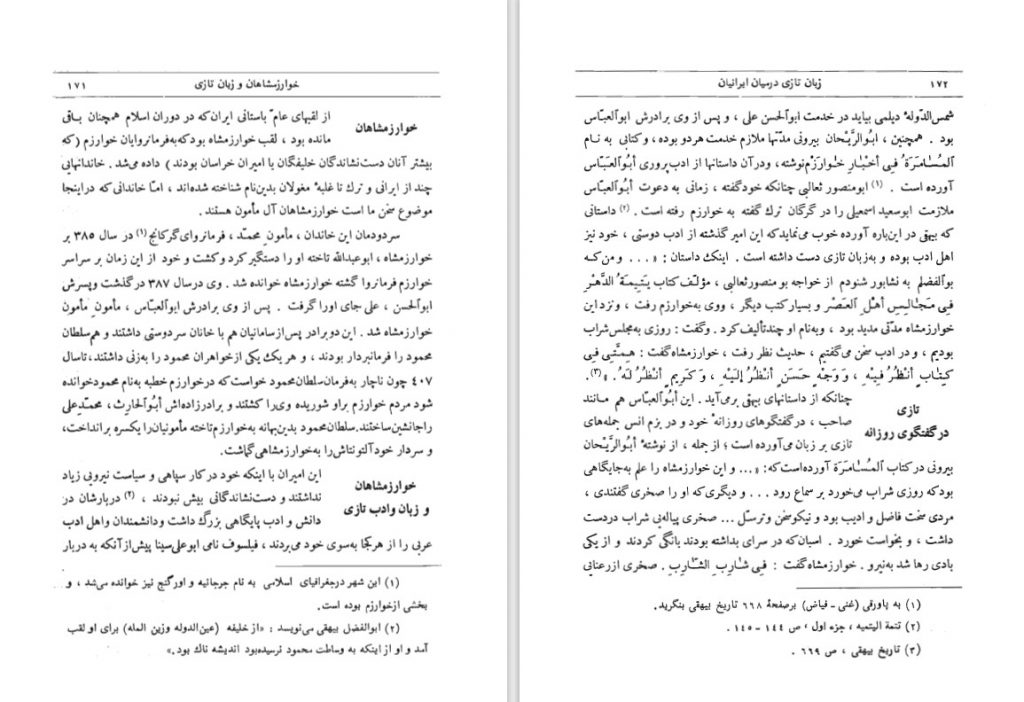 خوارزمشاهان و زبان تازی
۱۷۱
خوارزمشاهان
از لقبهای عامّ باستانی ایران‌که در دوران اسلام همچنان باقی
مانده بود ، لقب خوارزمشاه بودکه‌به‌فرمانروایان خوارزم (که
بیشتر آنان دست‌نشاندگان خلیفگان یا امیران خراسان بودند ) داده می‌شد . خاندانهایی
چند از ایرانی و ترك تا غلبهٔ مغولان بدین‌نام شناخته شده‌اند ، امّا خاندانی که دراینجا
موضوع سخن ما است خوارزمشاهان آل مأمون هستند .
سردودمان این خاندان ، مأمون محمّد ، فرمانروای‌گرگانج (۱) در سال ۳۸۵ بر
خوارزمشاه ، ابوعبدالله تاخته او را دستگیر کرد وکشت و خود از این زمان بر سراسر
خوارزم فرمانروا گشته خوارزمشاه خوانده شد . وی درسال ۳۸۷ درگذشت وپسرش
ابوالحسن ، علی جای اورا گرفت . پس از وی برادرش ابوالعبّاس ، مأمونِ مأمون
خوارزمشاه شد . این دوبرادر پس‌ازسامانیان هم با خانان سردوستی داشتند و هم‌سلطان
محمود را فرمانبردار بودند ، و هر یك یکی ازخواهران محمود را به‌زنی داشتند، تاسال
۴۰۷ چون ناچار به‌فرمان‌سلطان‌محمود خواست‌که درخوارزم خطبه به‌نام محمودخوانده
شود مردم خوارزم براو شوریده وی‌را کشتند و برادرزاده‌اش أبوالحارث، محمّدعلی
راجانشین‌ساختند. سلطان‌محمود بدین‌بهانه به‌خوارزم‌تاخته مأمونیان‌را یکسره برانداخت،
و سردار خودآلتونتاش‌را به‌خوارزمشاهی‌گماشت.
خوارزمشاهان
و زبان وادب تازی
این امیران با اینکه خود در کار سپاهی و سیاست نیرویی زیاد
نداشتند و دست‌نشاندگانی بیش نبودند ، (۲) دربارشان در
دانش و ادب پایگاهی بزرگ داشت ودانشمندان واهل ادب
عربی را از هرکجا به‌سوی خود می‌بردند ، فیلسوف نامی ابوعلی‌سینا پیش‌ازآنکه به دربار
(۱) این شهر درجغرافیای اسلامی به نام جرجانیه و اورگنج نیز خوانده می‌شد ، و
بخشی ازخوارزم بوده است.
(۲) ابوالفضل بیهقی می‌نویسد : «از خلیفه (عین‌الدوله وزین المله) برای او لقب
آمد و او از اینکه به وساطت محمود نرسیده‌بود اندیشه ناك بود.»
۱۷۲
زبان تازی درمیان ایرانیان
شمس‌الدّولهٔ دیلمی بیاید در خدمت ابوالحسن علی ، و پس از وی برادرش ابوالعبّاس
بود . همچنین ، ابوالرَّیْحان بیرونی مدّتها ملازم خدمت هردو بوده ، وکتابی به نام
المُسَامَرَةُ فِی أخْبَارِ خَوارَزْم‌نوشته، ودرآن داستانها از ادب‌پروری أبوالعبّاس
آورده است . (۱) ابومنصور ثعالبی چنانکه خودگفته ، زمانی به دعوت أبوالعبّاس
ملازمت ابوسعید اسمعیلی را در گرگان ترك گفته به خوارزم رفته است . (۲) داستانی
که بیهقی در این‌باره آورده خوب می‌نمایدکه این امیر گذشته از ادب دوستی ، خود نیز
اهل ادب بوده و به‌زبان تازی دست داشته است . اینك داستان : «. . . و من‌که
بوالفضلم به نشابور شنودم از خواجه بومنصورثعالبی ، مؤلّف کتاب یَتیمةُ الدَّهْر
فِی مَحَاسِنِ أهْلِ العَصْر و بسیار کتب دیگر ، ووی به‌خوارزم رفت ، ونزد این
خوارزمشاه مدّتی مدید بود ، وبه‌نام او چندتألیف‌کرد . وگفت : روزی به‌مجلس‌شراب
بودیم ، و در ادب سخن می‌گفتیم ، حدیث نظر رفت ، خوارزمشاه‌گفت : هِمَّتِی فِی
کِتَابٍ أنْظُرُ فِیهِ ، وَوَجْهٍ حَسَنٍ أنْظُرُ إلَیْهِ ، وَکَرِیمٍ أنْظُرُ لَهُ . » (۳).
تازی
درگفتگوی روزانه
چنانکه از داستانهای بیهقی برمی‌آید . این أبوالعبّاس هم مانند
صاحب ، درگفتگوهای روزانهٔ خود و در بزم انس جمله‌های
تازی بر زبان می‌آورده است ؛ ازجمله ، از نوشتهٔ أبوالرَّیْحان
بیرونی درکتاب المُسَامَرَة آورده‌است‌که: «. . . و این خوارزمشاه را علم به‌جایگاهی
بودکه روزی شراب می‌خورد بر سماع رود . . . و دیگری‌که او را صخری گفتندی ،
مردی سخت فاضل و ادیب بود و نیکوسخن وترسّل . . . صخری پیاله‌یی شراب دردست
داشت ، و بخواست خورد . اسبان‌که در سرای بداشته بودند بانگی کردند و از یکی
بادی رها شد به‌نیرو . خوارزمشاه‌گفت : فِی شَارِبِ الشَّارِبِ . صخری ازرعنایی
(۱) به پاورقی (غنی ـ فیاض) برصفحهٔ ۶۶۸ تاریخ بیهقی بنگرید.
(۲) تتمة الیتمیه ، جزء اول ، ص ۱۴۴ ـ ۱۴۵ .
(۳) تاریخ بیهقی ، ص ۶۶۹ .